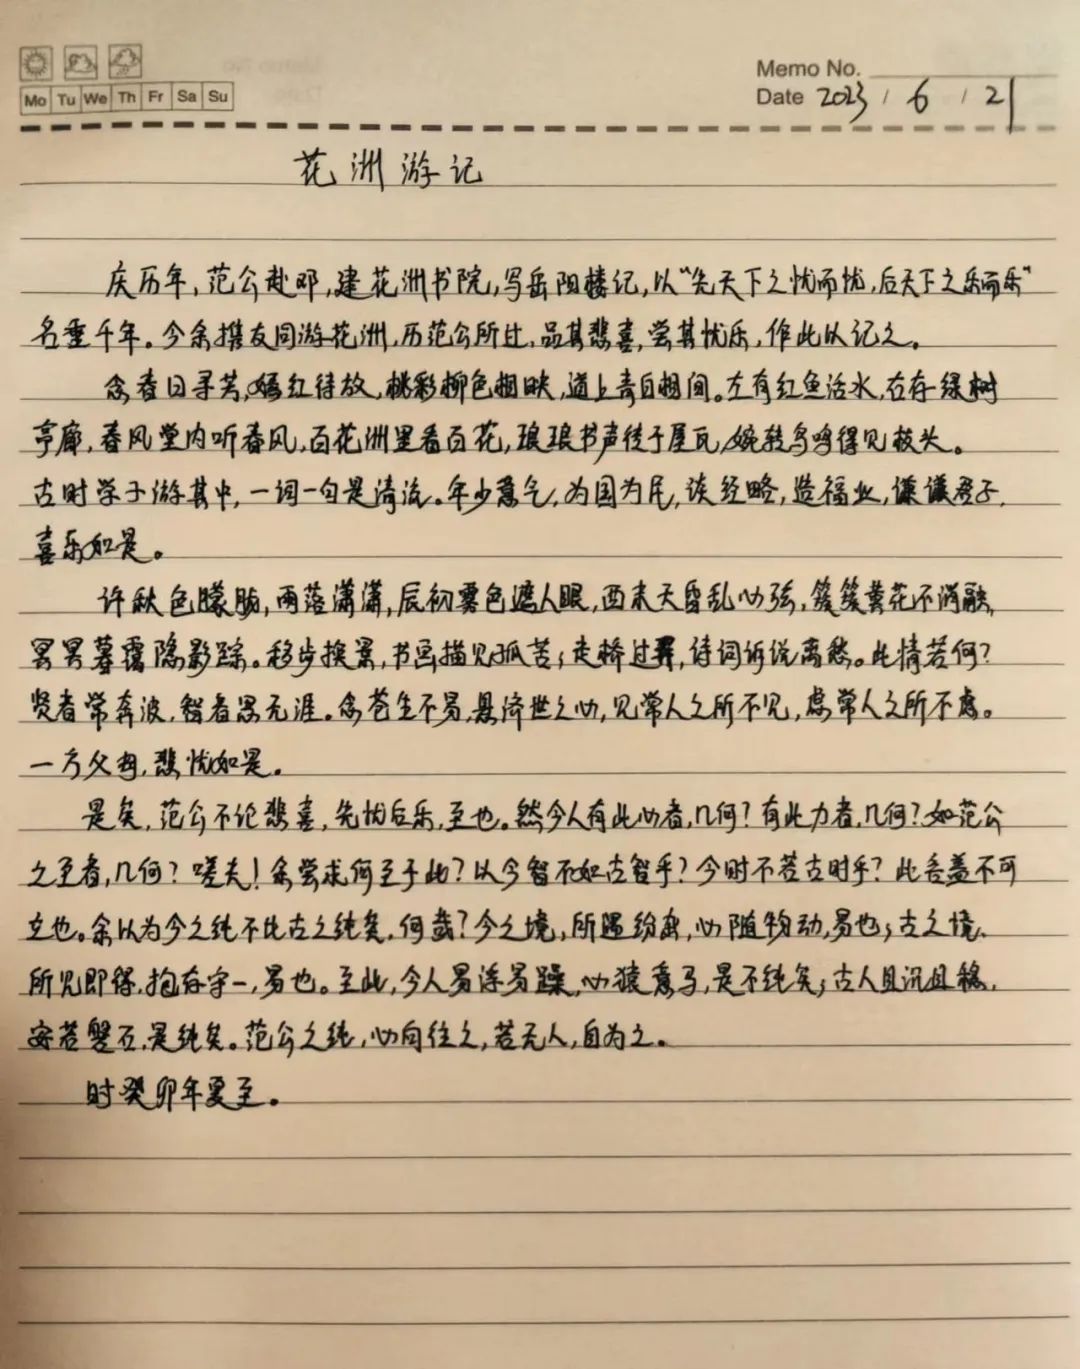 Mo Tu We Th Fr Sa Su
Memo No.
Date 2023 / 6 / 21
花洲游记
庆历年,范公赴邓,建花洲书院,写岳阳楼记,以“先天下之忧而忧,后天下之乐而乐”
名垂千年。今余携友同游花洲,历范公所过,品其悲喜,尝其忧乐,作此以记之。
念春日寻芳,嫣红待放,桃彩柳色相映,道上青白相间。左有红鱼活水,右存绿树
亭廊,春风堂内听春风,百花洲里看百花,琅琅书声徒于屋瓦,婉转鸟鸣得见枝头。
古时学子游其中,一词一句是清流。年少意气,为国为民,谈经略,造福业,谦谦君子,
喜乐如是。
许秋色朦胧,雨落潇潇,辰初雾色遮人眼,酉末天昏乱心弦,簇簇黄花不消融,
冥冥暮霭隐影踪。移步换景,书画描见孤苦;走桥过,诗词诉说离愁。此情若何?
贤者常奔波,智者思无涯。念苍生不易,悬济世之心,见常人之所不见,虑常人之所不虑。
一方父母,悲忧如是。
是矣,范公不论悲喜,先忧后乐,至也。然今人有此心者,几何?有此力者,几何?如范公
之至者,几何?嗟夫!余尝求何至于此?以今智不如古智乎?今时不若古时乎?此言盖不可
立也。余以为今之纯不比古之纯矣,何哉?今之境,所遇纷杂,心随物动,易也;古之境,
所见即得,抱存守一,易也。至此,今人易浮易躁,心猿意马,是不纯矣;古人且沉且稳,
安若磐石,是纯矣。范公之纯,心向往之,若无人,自为之。
时癸卯年夏至。